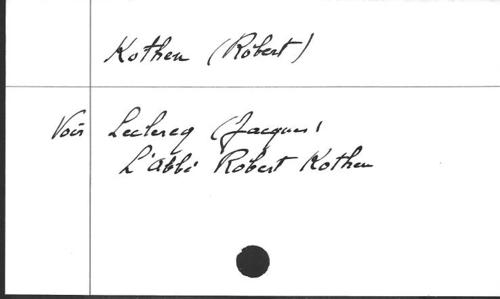 Kothen (Robert)
Voir Leclercq (Jacques)
L'abbé Robert Kothen